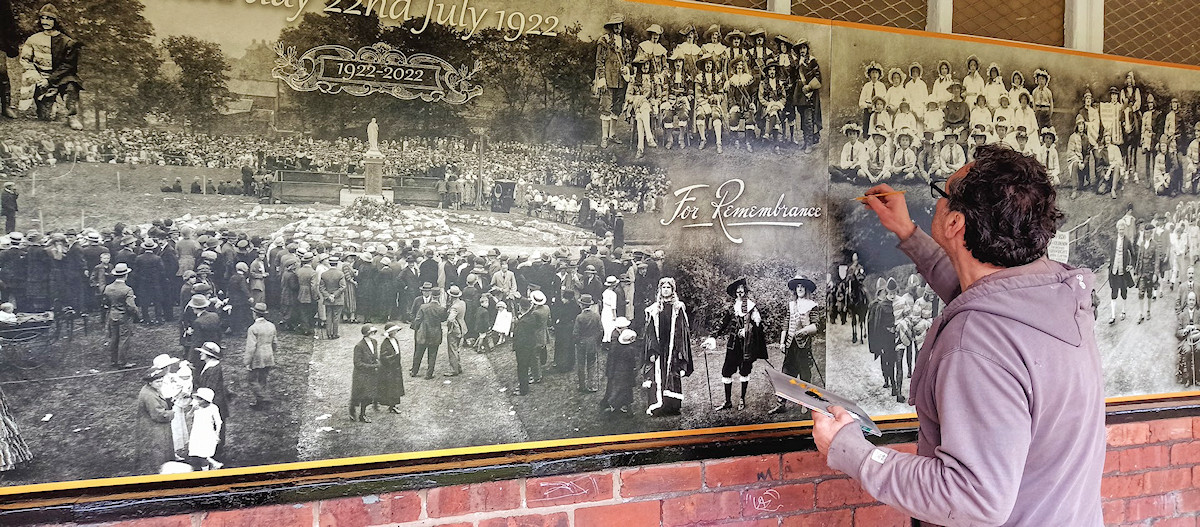 22nd July 1922
1922-2022
For Remembrance